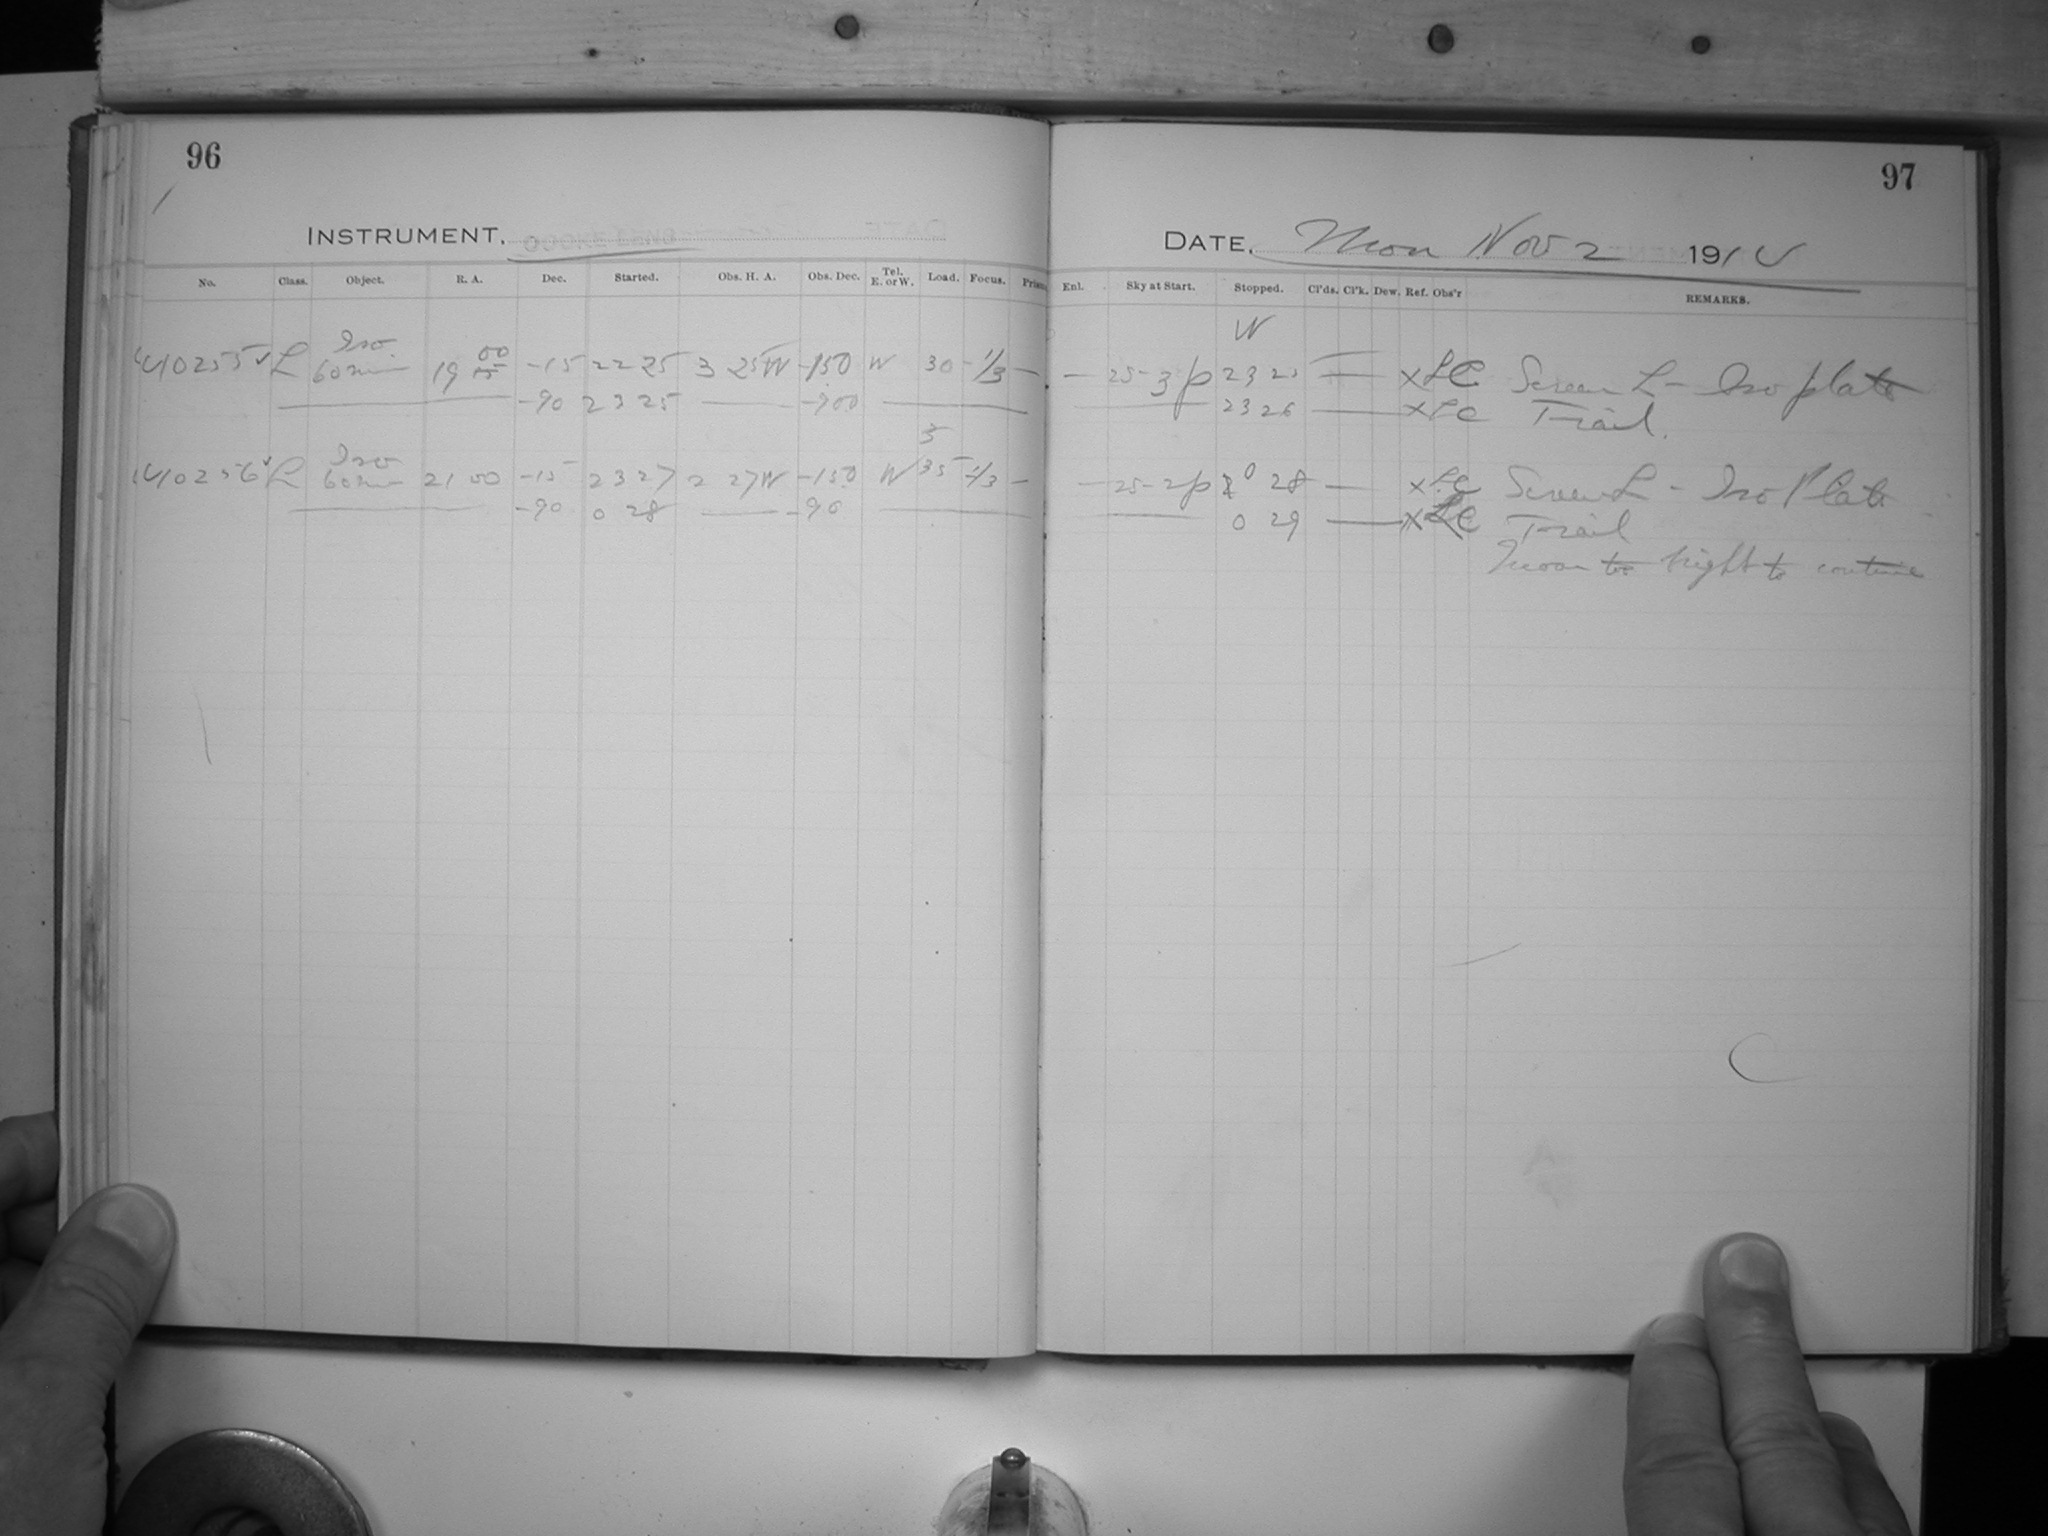 96
INSTRUMENT.
No. Class. Object. R. A. Dec. Started. Obs. H. A. Obs. Dec. Tel. E. or W. Load. Focus. Prism
L Iso 60 min 19 00 -15 22 25 3 25 W -150 W 30 -1/3 —
-90 23 25 — -900 —
L Iso 60 min 21 00 -15 23 27 2 27 W -150 W 35 -1/3 —
-90 0 28 — -90 —
97
DATE. Mon Nov 2 1914
Enl. Sky at Start. Stopped. Cl'ds. Cl'k. Dew. Ref. Obs'r REMARKS.
W
— 25-3p 23 25 — × LC Screen L - Iso plate
— 23 26 — × LC Trail.
— 25-2p 0 28 — × LC Screen L - Iso Plate
— 0 29 — × LC Trail
Moon too bright to continue